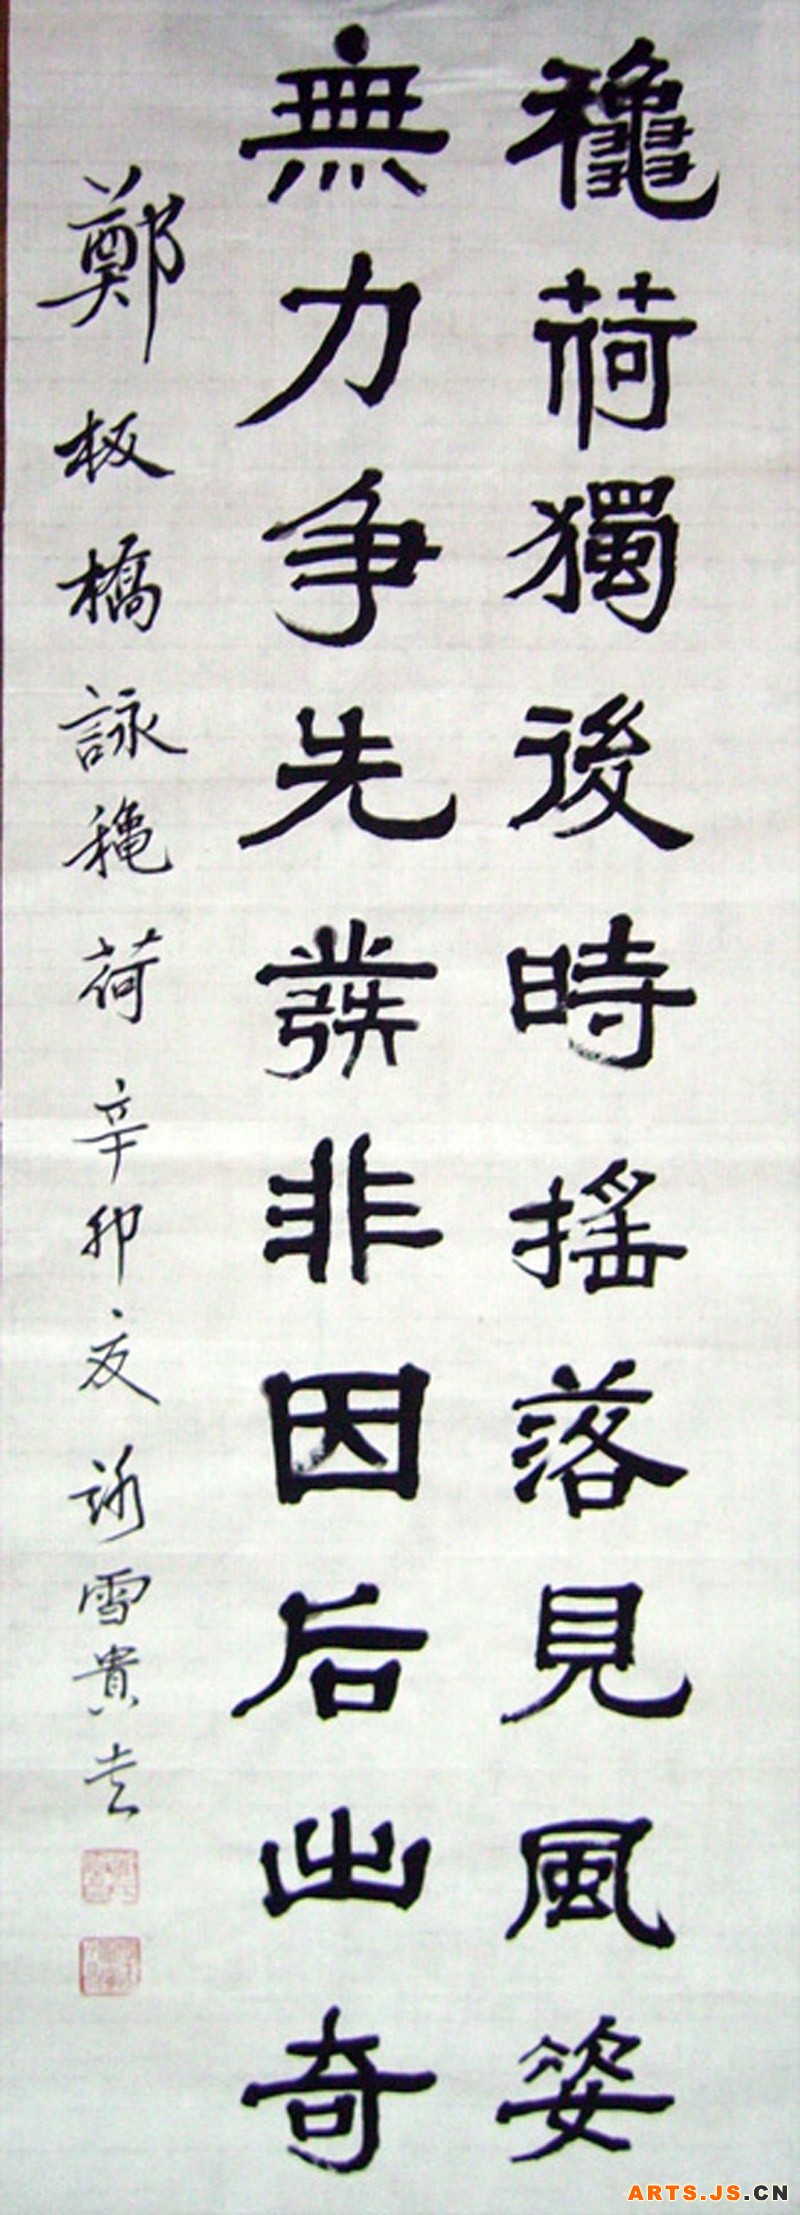 龝荷獨後時搖落見風姿
無力争先發非因后出奇
鄭板橋詠龝荷辛卯夏雪貴書
ARTS.JS.CN